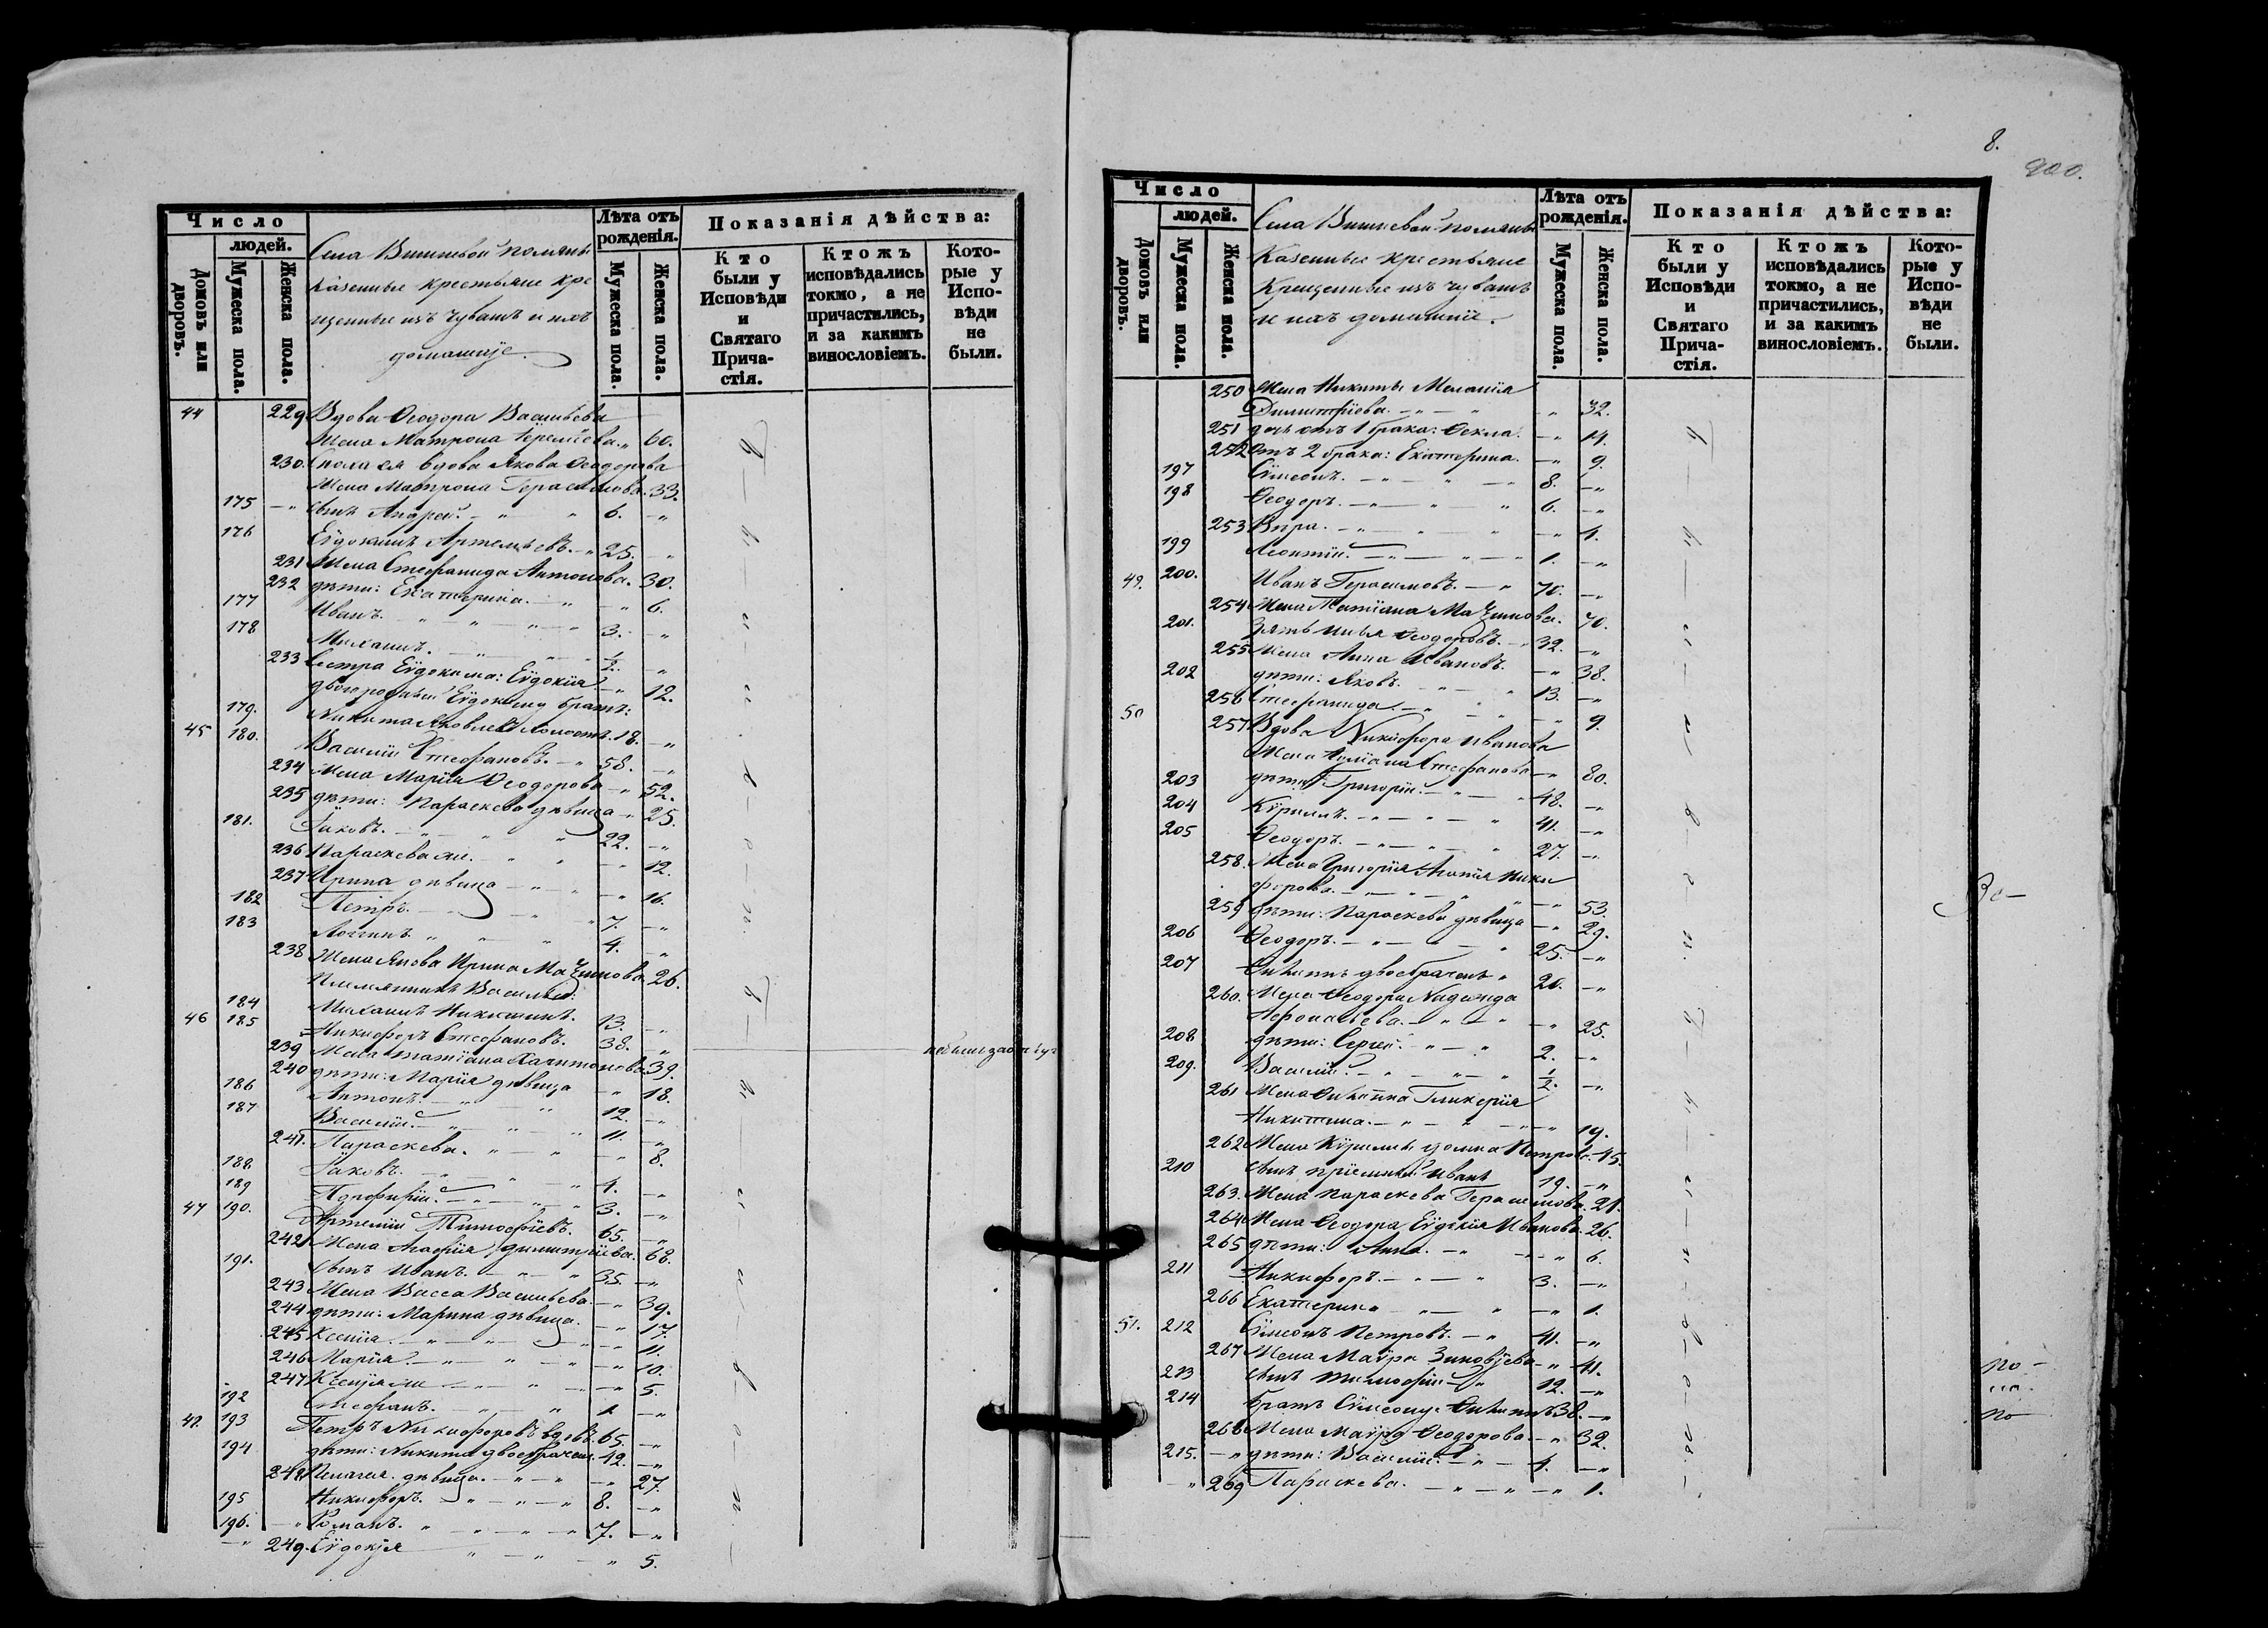 Число
людей.
Домовъ или дворовъ.
Мужеска пола.
Женска пола.
Села Вишневой поляны
казенные крестьяне кре
щенные изъ чувашъ и ихъ
домашнiе.
Лѣта отъ рожденiя.
Мужеска пола.
Женска пола.
Показанiя дѣйства:
Кто были у Исповѣди и Святаго Прича-стiя.
Ктожъ исповѣдались токмо, а не причастились, и за какимъ винословiемъ.
Кото-рые у Испо-вѣди не были.
44 229 Вдова Ѳеодора Васильева
жена Матрона Еремѣева. " 60.
230. Сноха ея вдова Якова Ѳеодорова
жена Матрона Герасимова. 33.
175 — " сынъ Андрей. — " " 6. — "
176 Еѵдокимъ Артемьевъ. — " 25. — "
231 Жена Стефанида Антонова. 30.
232 дѣти: Екатерина. — " — " 6.
177 Иванъ. " " " — " 3. — "
178 Михаилъ. — " — " 1/2. — "
233 Сестра Еѵдокима: Еѵдокiя — " 12.
двоюродный Еѵдокиму братъ:
179. Никита Яковлевъ холостъ. 18. — "
45 180. Василiй Стефановъ. — " 58. — "
234 Жена Марiя Ѳеодорова — " 52.
235 дѣти: Параскева дѣвица — " 25.
181. Iаковъ. — " " " 22. — "
236 Параскева же. — " " — " 12.
237 Ирина дѣвица — " — " — " 16.
182 Петръ. — " — " " 7. — "
183 Логгинъ " " " 4. — "
238 Жена Якова Ирина Маѯимова. 26.
Племянникъ Василья:
184 Михаилъ Никитинъ. 13. — "
46 185 Никифоръ Стефановъ. 38. — "
239 Жена Татiана Харитонова. 39.
240 дѣти: Марiя дѣвица — " 18.
186 Антонъ. — " — " 12. — "
187 Василiй. — " " " 11. — "
241. Параскева. " — " — " 8.
188 Iаковъ. — " — " — " 4. — "
189 Порфирiй. — " — " — " 3. — "
47 190. Артемiй Тимофѣевъ. 65. — "
242 Жена Агафiя Димитрiева. 68.
191. сынъ Иванъ. — " — " 35. — "
243 Жена Васса Васильева. — " 39.
244 дѣти: Марина дѣвица. — " 17.
245 Ксенiя. — " — " — " — " 11.
246 Марiя. — " " — " — " 10.
247 Ксенiя же — " — " " — " 5.
192 Стефанъ. — " — " 1. — "
48. 193 Петръ Никифоровъ вдовъ. 65. — "
194 дѣти: Никита двоебрачен. 42. — "
248 Пелагея дѣвица. — " — " — " 27.
195 Никифоръ. — " — " — " 8. — "
196. — " Романъ. " — " — " — " 7. — "
— " 249. Еѵдокiя " — " — " 5.
8.
900.
Число
людей.
Домовъ или дворовъ.
Мужеска пола.
Женска пола.
Села Вишневой поляны
казенные крестьяне
крещенные изъ чувашъ
и ихъ домашнiе.
Лѣта отъ рожденiя.
Мужеска пола.
Женска пола.
Показанiя дѣйства:
Кто были у Исповѣди и Святаго Прича-стiя.
Ктожъ исповѣдались токмо, а не причастились, и за какимъ винословiемъ.
Кото-рые у Испо-вѣди не были.
250 Жена Никиты Меланiя
Димитрiева. — " — " — " 32.
251 дочь отъ 1 брака: Ѳекла. — " 14.
252 Отъ 2 брака: Екатерина. — " 9.
197 Сѵмеонъ. — " — " — " 8. — "
198 Ѳеодоръ. — " — " " 6. — "
253 Вѣра. — " — " " — " 4.
199 Леонтiй. — " — " — " 1. — "
49. 200. Иванъ Герасимовъ. — " 70. — "
254 Жена Татiана Маѯимова. 70.
201. Зять Илья Ѳеодоровъ. — " 32. — "
255 Жена Анна Иванова. — " 38.
202 дѣти: Яковъ. " — " 13. — "
256 Стефанида. — " — " — " 9.
50 257 Вдова Никифора Иванова
Жена Iулiана Стефанова — " 80.
203 дѣти: Григорiй. — " — " 48. — "
204 Кѵриллъ. — " — " — " 41. — "
205 Ѳеодоръ. — " — " " 27. — "
258. Жена Григорiя Агапiя Ники
форова. — " — " " — " 53.
259 дѣти: Параскева дѣвица — " 29.
206 Ѳеодоръ. — " — " — " 25. — "
207 Филиппъ двоебраченъ " 20. — "
260. Жена Ѳеодора Надежда
— " — " — " 25.
208 дѣти: Сергей. — " — " 2. — "
209. Василiй. — " — " — " 1/2. — "
261 Жена Филиппа Гликерiя
Никитина. — " — " — " — " 19.
262 Жена Кѵрилла Домна Петрова. 45.
210 сынъ прiемный Иванъ 19. — "
263. Жена Параскева Герасимова. 21.
264 Жена Ѳеодора Еѵдокiя Иванова. 26.
265 дѣти: Анна. — " — " — " 6.
211 Никифоръ. — " — " " 3. — "
266 Екатерина — " — " " — " 1.
51. 212 Сѵмеонъ Петровъ. — " 41. — "
267 Жена Маѵра Зиновiева — " 41.
213 сынъ Тимофiй — " 12. — "
214 братъ Сѵмеону Филиппъ 38. — "
268 Жена Маѵра Ѳеодорова. — " 32.
215. — " дѣти: Василiй. — " — 4. — "
— " 269 Параскева. — " — " — " 1.